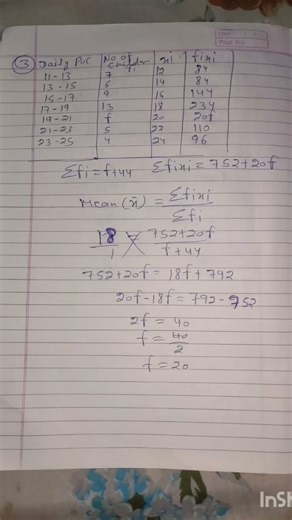 Date
Page No.
③ Daily Poc No of Children xi fixi
11-13 7 12 84
13-15 6 14 84
15-17 9 16 144
17-19 13 18 234
19-21 f 20 20f
21-23 5 22 110
23-25 4 24 96
Σfi = f+44 Σfixi = 752+20f
Mean (x̄) = Σfixi / Σfi
18/1 = 752+20f / f+44
752+20f = 18f+792
20f-18f = 792-752
2f = 40
f = 40/2
f = 20
InSh